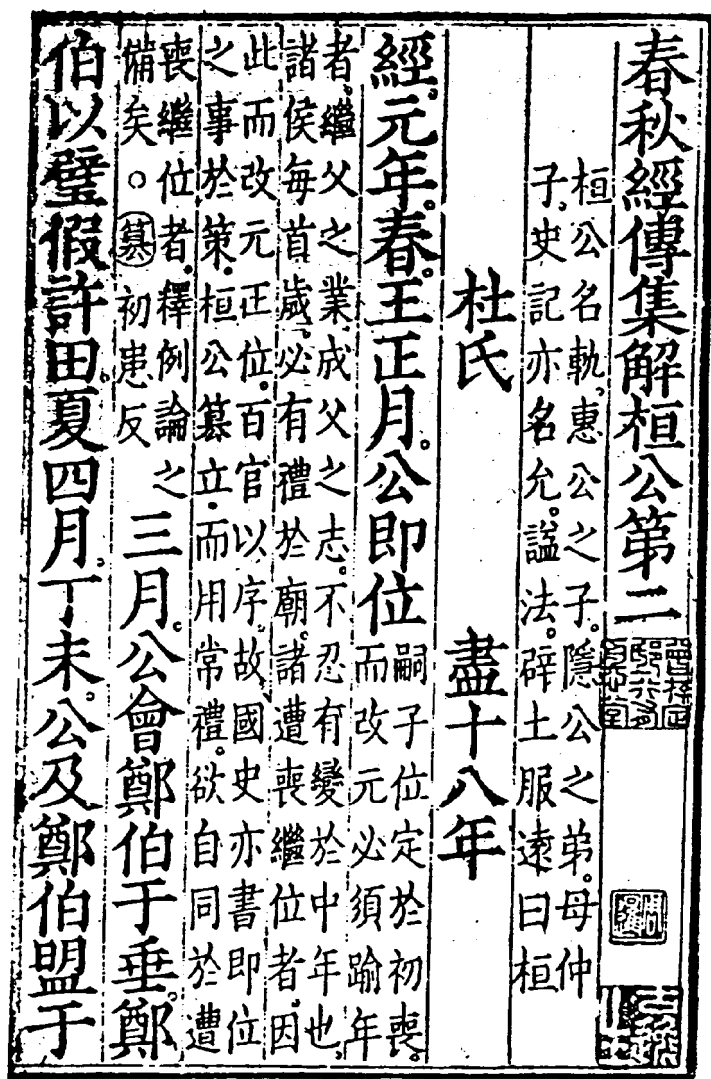 春秋經傳集解桓公第二
桓公名軌。惠公之子。隱公之弟。母仲
子。史記亦名允。謚法。辟土服遠曰桓
杜氏　盡十八年
經。元年。春。王正月。公即位
嗣子位定於初喪。
而改元必須踰年
者。繼父之業。成父之志。不忍有變於中年也。
諸侯每首歲。必有禮於廟。諸遭喪繼位者。因
此而改元正位。百官以序。故國史亦書即位
之事於策。桓公簒立。而用常禮。欲自同於遭
喪繼位者。釋例論之
備矣。○簒初患反
三月。公會鄭伯于垂。鄭
伯以璧假許田。夏四月。丁未。公及鄭伯盟于